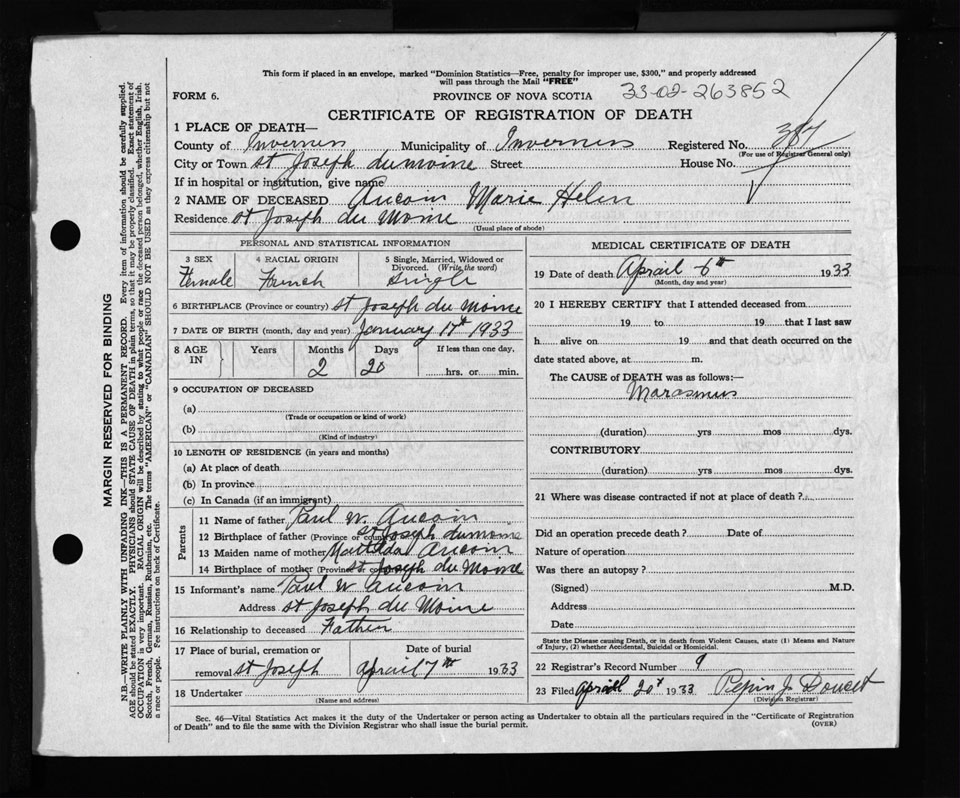 This form if placed in an envelope, marked "Dominion Statistics—Free, penalty for improper use, $300," and properly addressed
will pass through the Mail "FREE"
FORM 6.
PROVINCE OF NOVA SCOTIA
33-02-263852
CERTIFICATE OF REGISTRATION OF DEATH
1 PLACE OF DEATH—
County of Inverness Municipality of Inverness Registered No. 387
(For use of Registrar General only)
City or Town St Joseph dumoine Street House No.
If in hospital or institution, give name
2 NAME OF DECEASED Aucoin Marie Helen
Residence St Joseph du Moine
(Usual place of abode)
PERSONAL AND STATISTICAL INFORMATION
3 SEX Female
4 RACIAL ORIGIN French
5 Single, Married, Widowed or Divorced. (Write the word) Single
6 BIRTHPLACE (Province or country) St Joseph du Moine
7 DATE OF BIRTH (month, day and year) January 17th 1933
8 AGE IN Years Months Days If less than one day,
2 20 hrs. or min.
9 OCCUPATION OF DECEASED
(a)
(Trade or occupation or kind of work)
(b)
(Kind of industry)
10 LENGTH OF RESIDENCE (in years and months)
(a) At place of death
(b) In province
(c) In Canada (if an immigrant)
Parents
11 Name of father Paul W. Aucoin
12 Birthplace of father (Province or country) St Joseph dumoine
13 Maiden name of mother Matilda Aucoin
14 Birthplace of mother (Province or country) St Joseph du Moine
15 Informant's name Paul W Aucoin
Address St Joseph du Moine
16 Relationship to deceased Father
17 Place of burial, cremation or removal St Joseph
Date of burial Aprail 7th 1933
18 Undertaker
(Name and address)
MEDICAL CERTIFICATE OF DEATH
19 Date of death Aprail 6th 1933
(Month, day and year)
20 I HEREBY CERTIFY that I attended deceased from
19 to 19 that I last saw
h alive on 19 and that death occurred on the
date stated above, at m.
The CAUSE of DEATH was as follows:—
Marasmus
(duration) yrs mos dys.
CONTRIBUTORY
(duration) yrs mos dys.
21 Where was disease contracted if not at place of death?
Did an operation precede death? Date of
Nature of operation
Was there an autopsy?
(Signed) M.D.
Address
Date
State the Disease causing Death, or in death from Violent Causes, state (1) Means and Nature
of Injury, (2) whether Accidental, Suicidal or Homicidal.
22 Registrar's Record Number 9
23 Filed Aprail 20th 1933 Pepin J. Doucet
(Division Registrar)
Sec. 46—Vital Statistics Act makes it the duty of the Undertaker or person acting as Undertaker to obtain all the particulars required in the "Certificate of Registration
of Death" and to file the same with the Division Registrar who shall issue the burial permit.
(OVER)
MARGIN RESERVED FOR BINDING
N.B.—WRITE PLAINLY WITH UNFADING INK—THIS IS A PERMANENT RECORD. Every item of information should be carefully supplied.
AGE should be stated EXACTLY. PHYSICIANS should STATE CAUSE OF DEATH in plain terms, so that it may be properly classified. Exact statement of
OCCUPATION is very important. RACIAL ORIGIN will be described by stating to what people or race the deceased person belonged, whether English, Irish,
Scotch, French, German, Russian, Ruthenian, etc. The terms "AMERICAN" or "CANADIAN" SHOULD NOT BE USED as they express citizenship but not
a race or people. Fee instructions on back of Certificate.